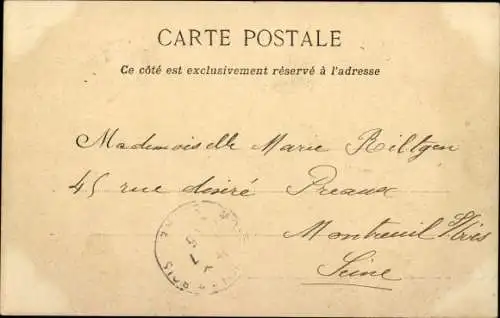 CARTE POSTALE
Ce côté est exclusivement réservé à l'adresse
Mademoiselle Marie Riltgen
45 rue désiré Preaux
Montreuil s/Bois
Seine